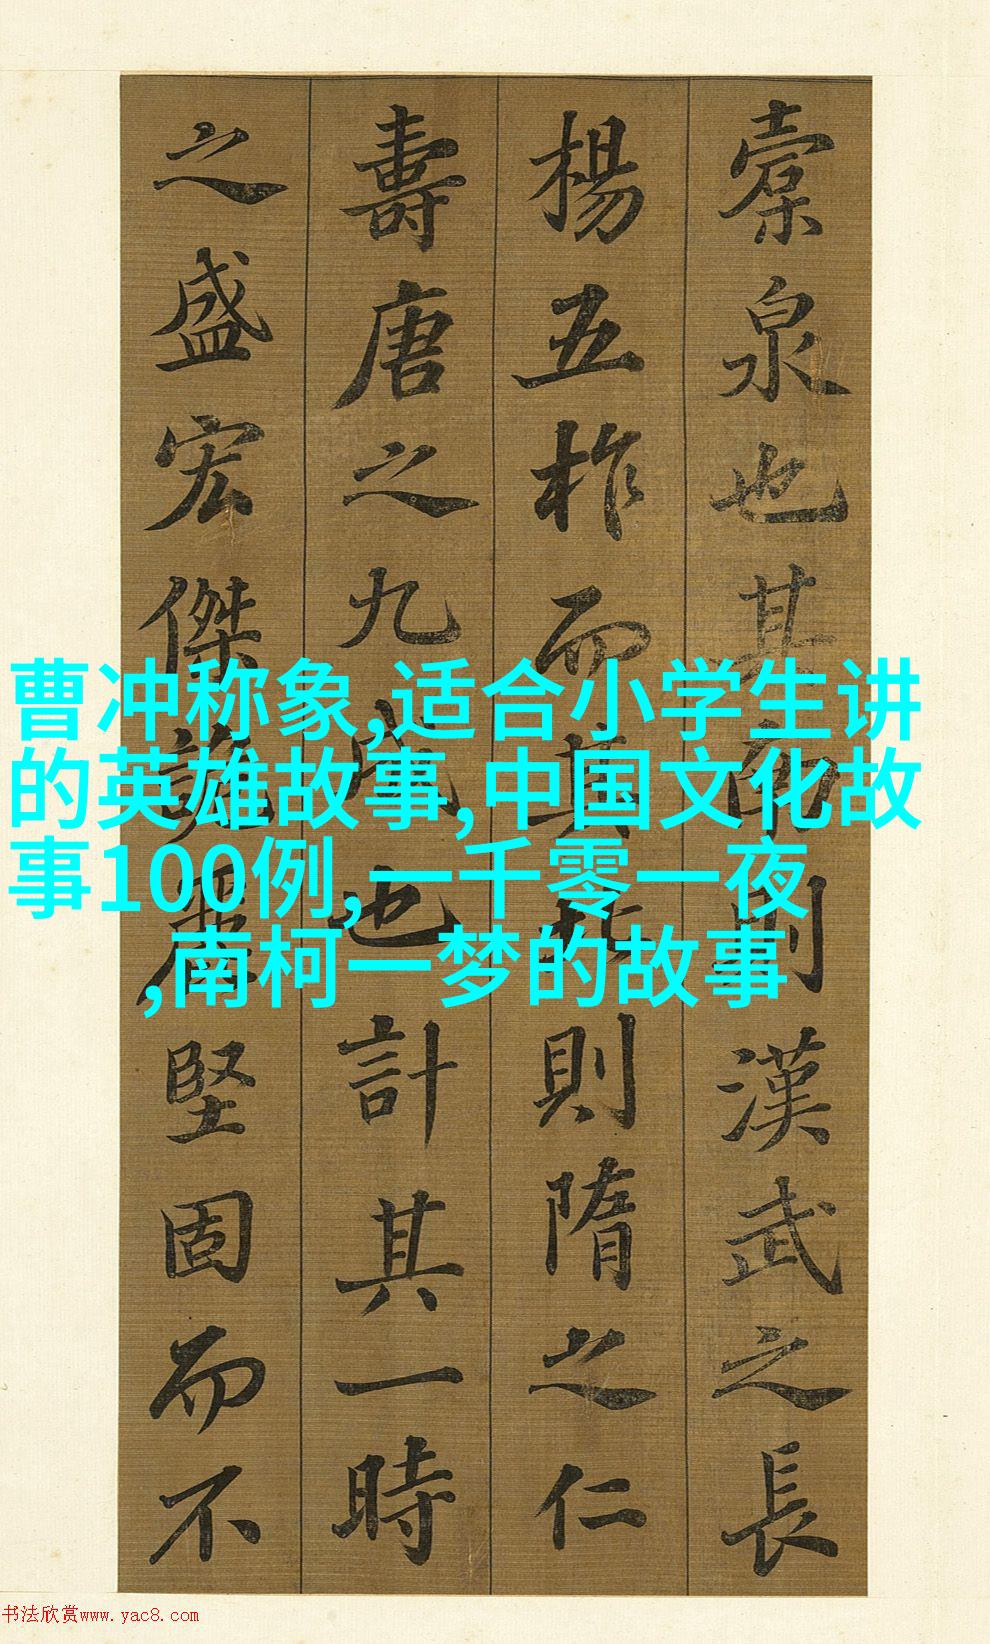 橐泉也其南則漢武之長
楊五柞而其北則隋之仁
壽唐之九成也計其一時
之盛宏傑詭麗堅固而不
曹冲称象,适合小学生讲
的英雄故事,中国文化故
事100例,一千零一夜
,南柯一梦的故事
书法欣赏www.yac8.com